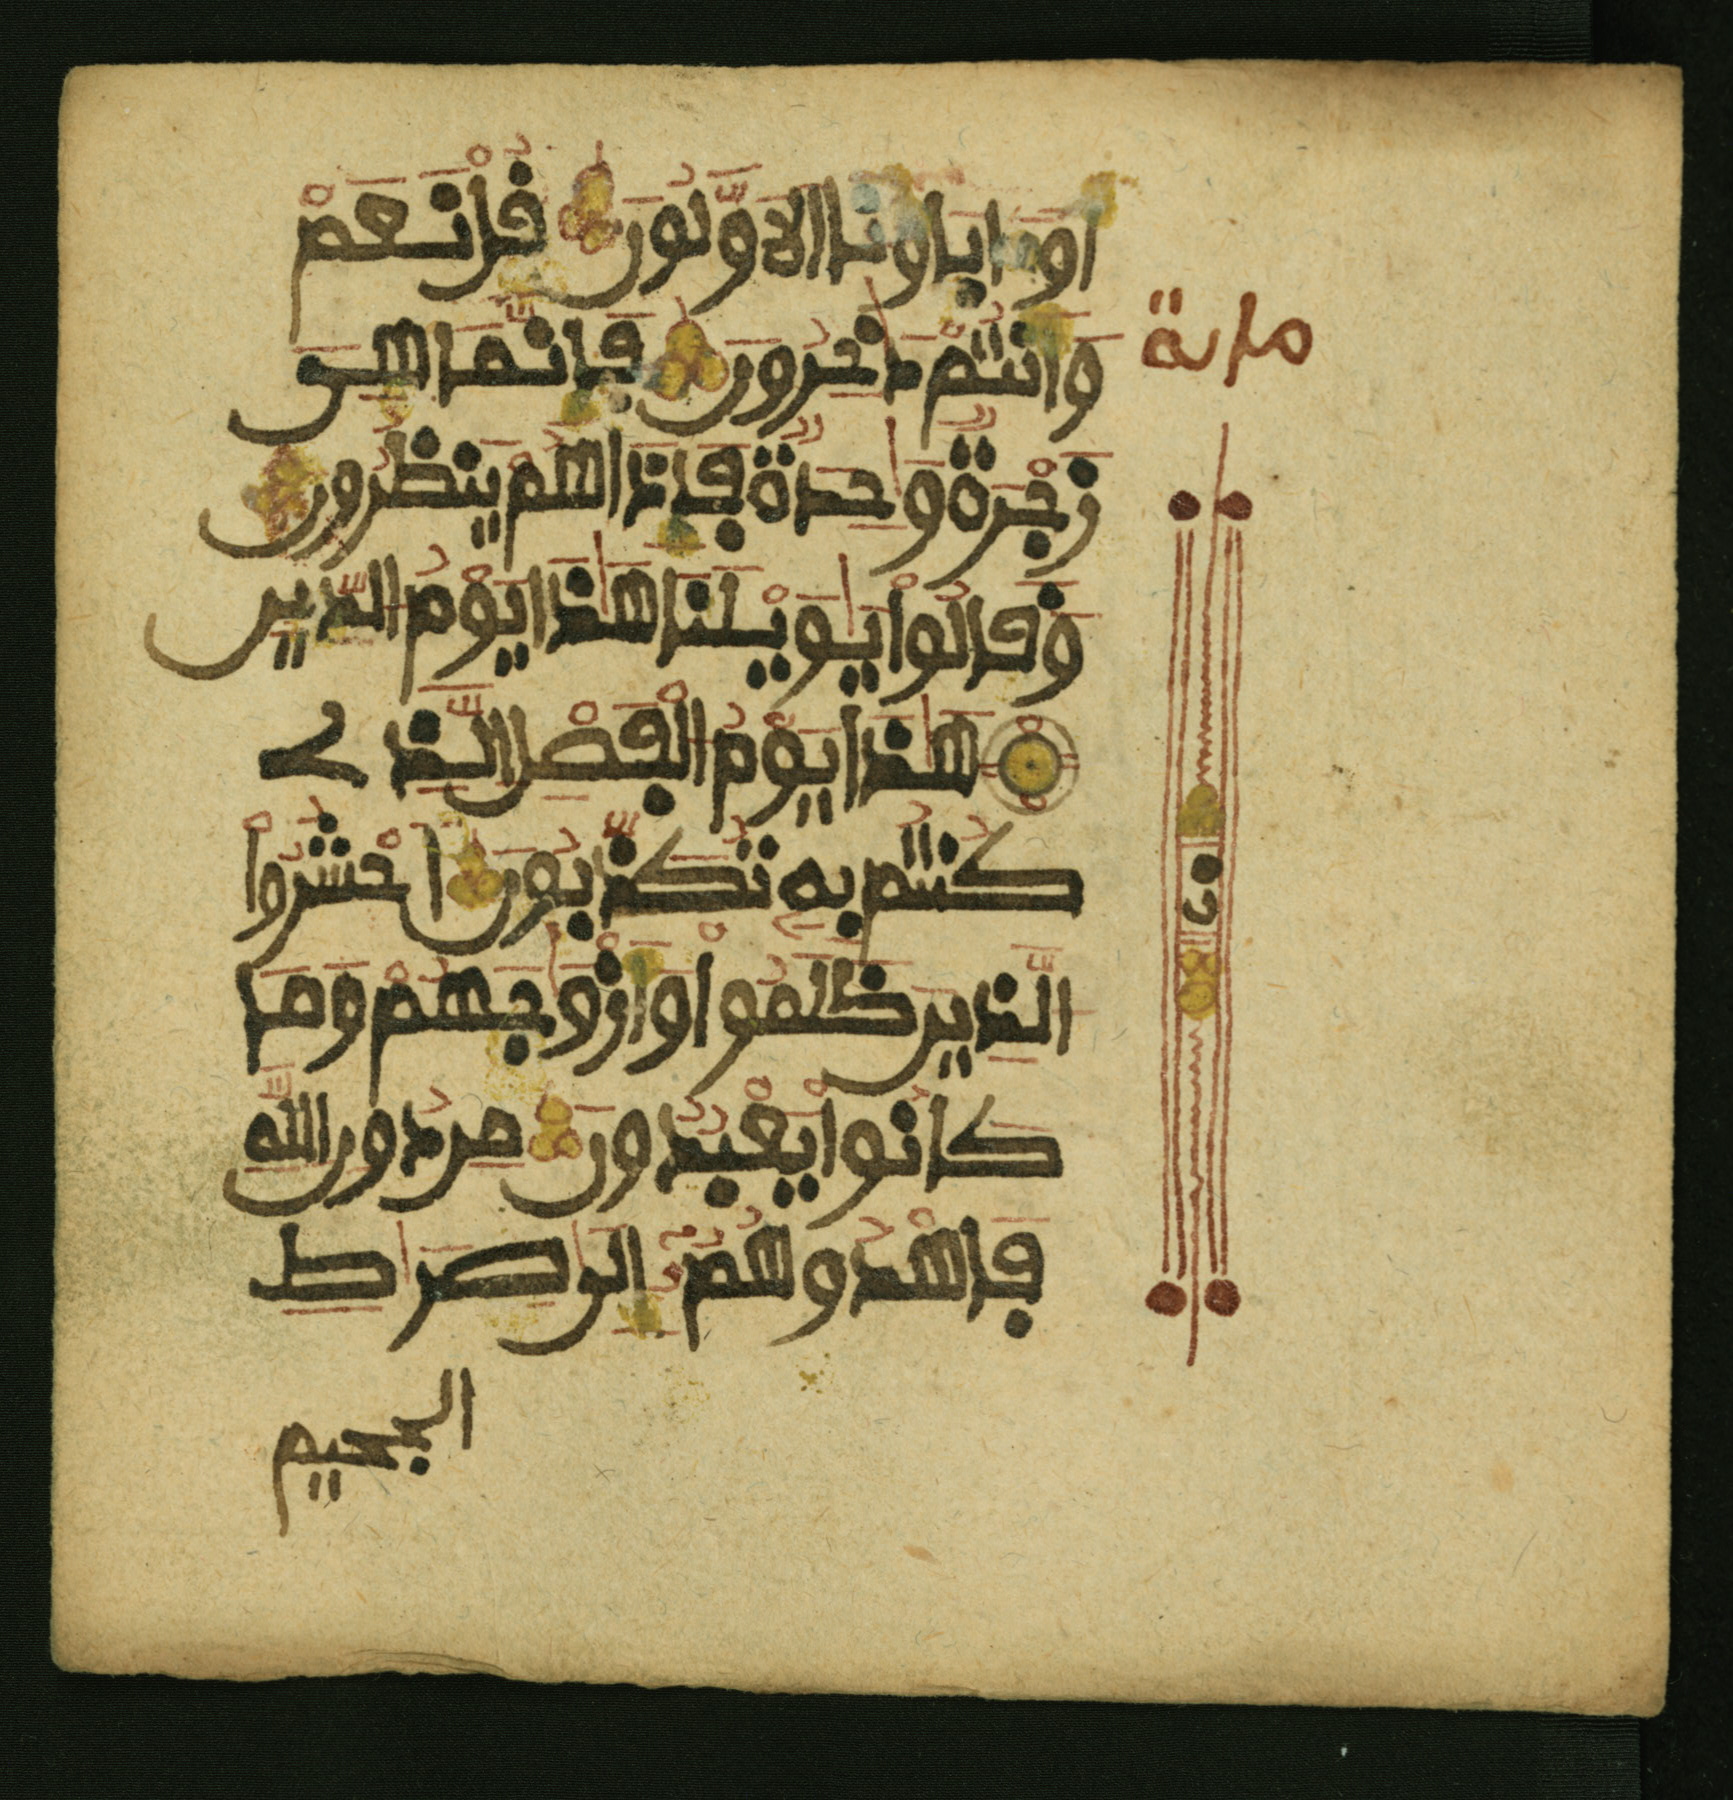 أَوَءَابَاؤُنَا الَاوَّلُونَ قُلْ نَعَمْ
وَأَنتُمْ دَٰخِرُونَ فَإِنَّمَا هِيَ
زَجْرَةٌ وَٰحِدَةٌ فَإِذَا هُمْ يَنظُرُونَ
وَقَالُواْ يَٰوَيْلَنَا هَٰذَا يَوْمُ الدِّينِ
هَٰذَا يَوْمُ الْفَصْلِ الَّذِے
كُنتُم بِهِۦ تُكَذِّبُونَ احْشُرُواْ
الَّذِينَ ظَلَمُواْ وَأَزْوَٰجَهُمْ وَمَا
كَانُواْ يَعْبُدُونَ مِن دُونِ اللَّهِ
فَاهْدُوهُمُۥ إِلَىٰ صِرَٰطِ
الجحيم